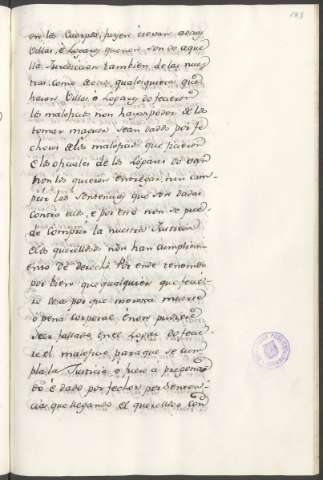 en los Cuerpos, fuyen, è se van à otras
Villas, è Logares que non son de aque
lla Jurediccion tambien de las nues
tras, como de otras qualesquiera, que
hieron Villas, ò Logares do fecieron
los maleficios non han poder de los
tomar maguer sean dados por fe
chores de los maleficios que ficieron
è los oficiales de los Logares do van
non los quieren entregar, nin cum
plir las Sentencias que son dadas
contra ellos, è por ende non se pue
de complir la nuestra Justicia
è los querellosos non han cumplimi
ento de derecho. Por ende tenemos
por bien que qualquier que ficie
re cosa por que meresca muerte
ò pena corporal è non pudiere
seer fallado en el Logar do fecie
re el maleficio, para que se cum
pla la Justicia, ò fuere à pregona
do è dado por fechor por Senten
cia, que llegando el querelloso con